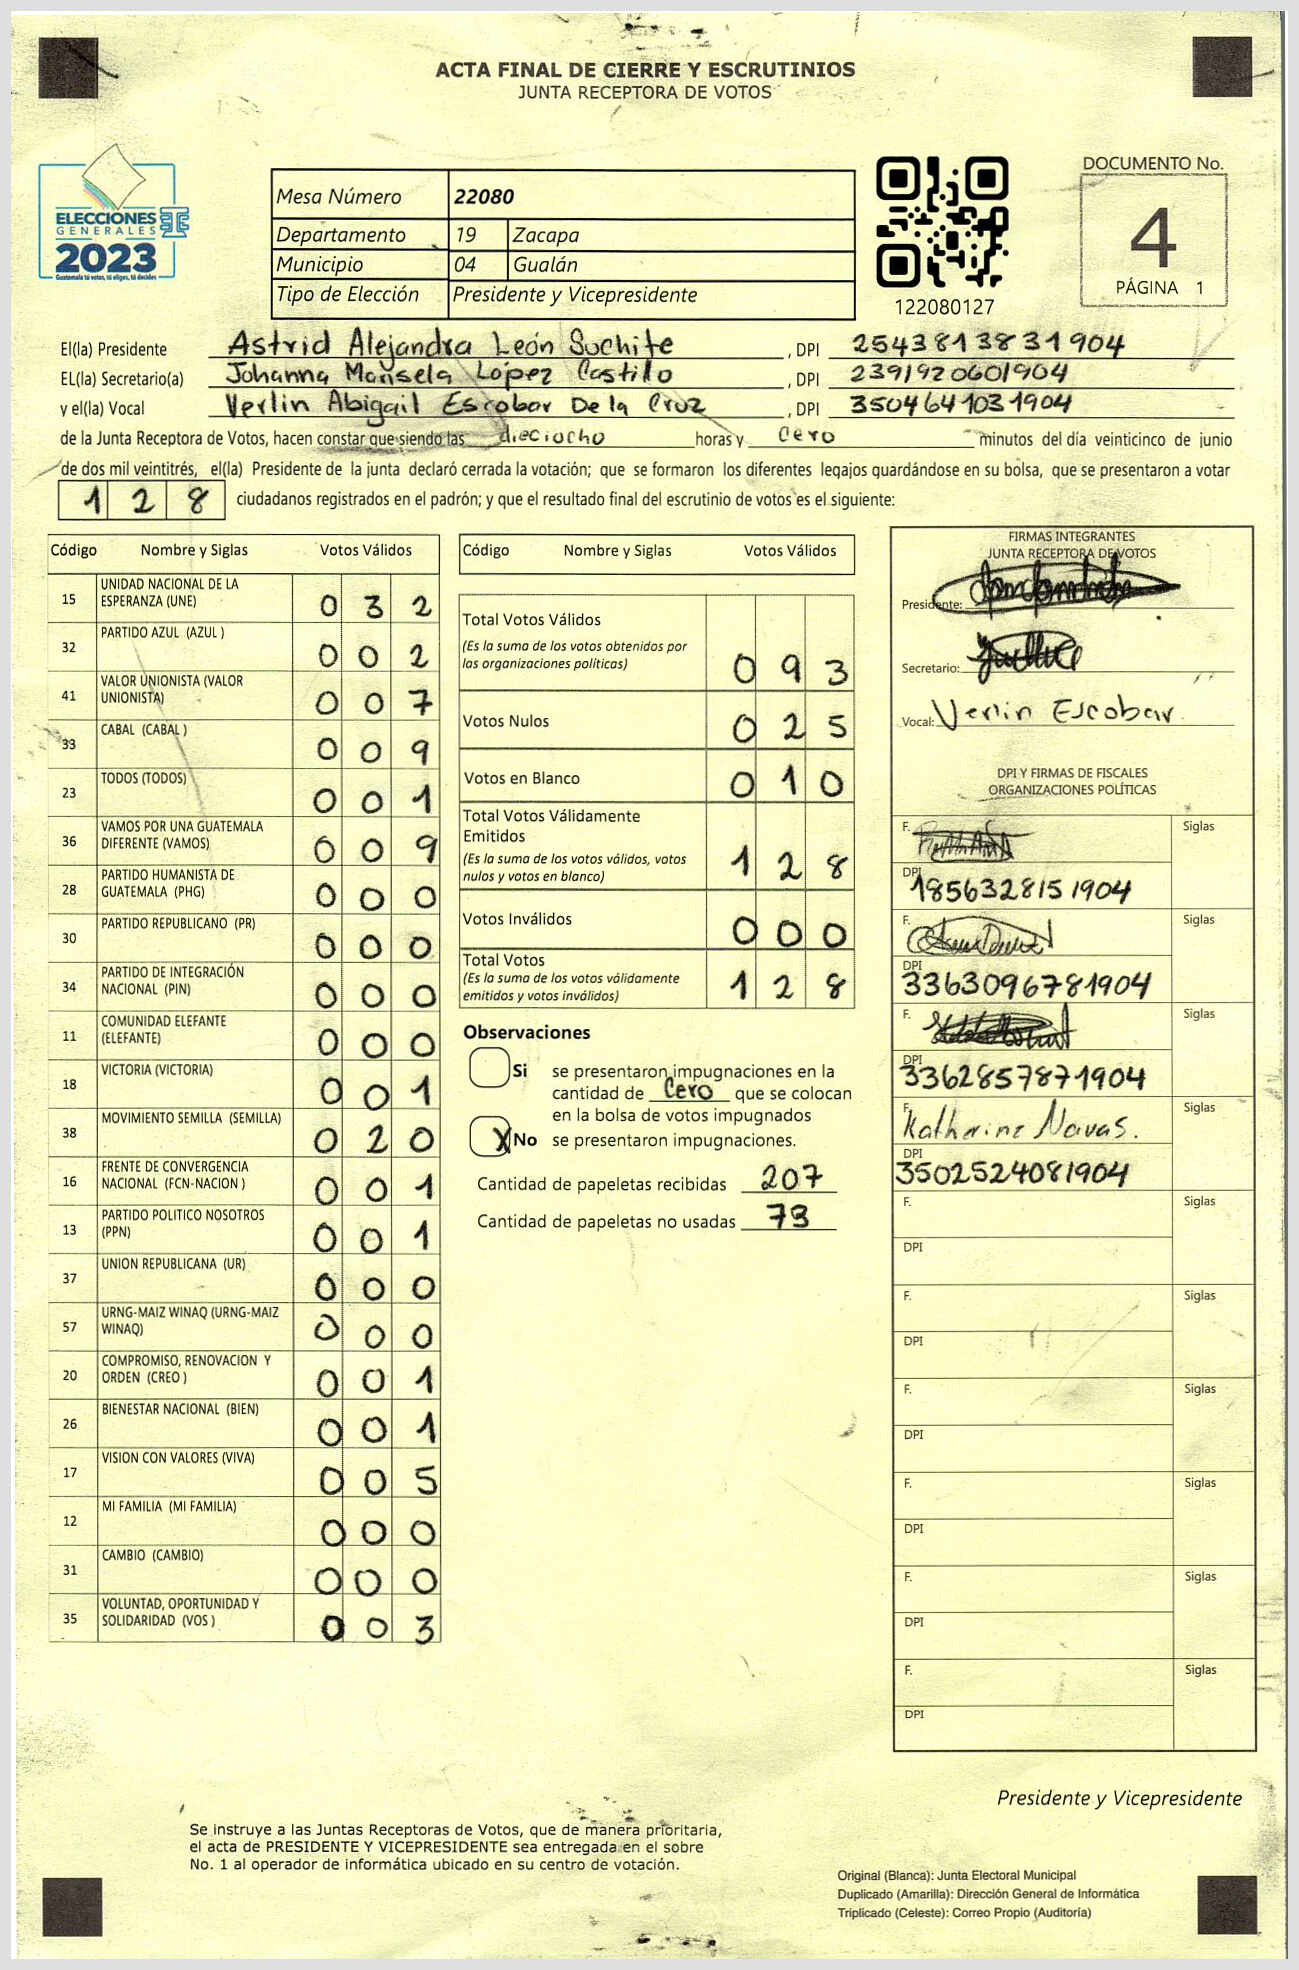 ACTA FINAL DE CIERRE Y ESCRUTINIOS
JUNTA RECEPTORA DE VOTOS
ELECCIONES
GENERALES
2023
Guatemala tú votas, tú eliges, tú decides
Mesa Número 22080
Departamento 19 Zacapa
Municipio 04 Gualán
Tipo de Elección Presidente y Vicepresidente
122080127
DOCUMENTO No.
4
PÁGINA 1
El(la) Presidente Astrid Alejandra León Suchite , DPI 2543813831904
EL(la) Secretario(a) Johanna Marisela López Castillo , DPI 2391920601904
y el(la) Vocal Verlin Abigail Escobar De la Cruz , DPI 3504641031904
de la Junta Receptora de Votos, hacen constar que siendo las dieciocho horas y cero minutos del día veinticinco de junio
de dos mil veintitrés, el(la) Presidente de la junta declaró cerrada la votación; que se formaron los diferentes legajos guardándose en su bolsa, que se presentaron a votar
128 ciudadanos registrados en el padrón; y que el resultado final del escrutinio de votos es el siguiente:
Código Nombre y Siglas Votos Válidos
15 UNIDAD NACIONAL DE LA ESPERANZA (UNE) 0 3 2
32 PARTIDO AZUL (AZUL ) 0 0 2
41 VALOR UNIONISTA (VALOR UNIONISTA) 0 0 7
33 CABAL (CABAL ) 0 0 9
23 TODOS (TODOS) 0 0 1
36 VAMOS POR UNA GUATEMALA DIFERENTE (VAMOS) 0 0 9
28 PARTIDO HUMANISTA DE GUATEMALA (PHG) 0 0 0
30 PARTIDO REPUBLICANO (PR) 0 0 0
34 PARTIDO DE INTEGRACIÓN NACIONAL (PIN) 0 0 0
11 COMUNIDAD ELEFANTE (ELEFANTE) 0 0 0
18 VICTORIA (VICTORIA) 0 0 1
38 MOVIMIENTO SEMILLA (SEMILLA) 0 2 0
16 FRENTE DE CONVERGENCIA NACIONAL (FCN-NACION ) 0 0 1
13 PARTIDO POLITICO NOSOTROS (PPN) 0 0 1
37 UNION REPUBLICANA (UR) 0 0 0
57 URNG-MAIZ WINAQ (URNG-MAIZ WINAQ) 0 0 0
20 COMPROMISO, RENOVACION Y ORDEN (CREO ) 0 0 1
26 BIENESTAR NACIONAL (BIEN) 0 0 1
17 VISION CON VALORES (VIVA) 0 0 5
12 MI FAMILIA (MI FAMILIA) 0 0 0
31 CAMBIO (CAMBIO) 0 0 0
35 VOLUNTAD, OPORTUNIDAD Y SOLIDARIDAD (VOS ) 0 0 3
Código Nombre y Siglas Votos Válidos
Total Votos Válidos
(Es la suma de los votos obtenidos por
las organizaciones políticas) 0 9 3
Votos Nulos 0 2 5
Votos en Blanco 0 1 0
Total Votos Válidamente
Emitidos
(Es la suma de los votos válidos, votos
nulos y votos en blanco) 1 2 8
Votos Inválidos 0 0 0
Total Votos
(Es la suma de los votos válidamente
emitidos y votos inválidos) 1 2 8
Observaciones
Si se presentaron impugnaciones en la
cantidad de Cero que se colocan
en la bolsa de votos impugnados
X No se presentaron impugnaciones.
Cantidad de papeletas recibidas 207
Cantidad de papeletas no usadas 79
FIRMAS INTEGRANTES
JUNTA RECEPTORA DE VOTOS
Presidente:
Secretario:
Vocal: Verlin Escobar
DPI Y FIRMAS DE FISCALES
ORGANIZACIONES POLÍTICAS
F. Siglas
DPI 1856328151904
F. Siglas
DPI 3363096781904
F. Siglas
DPI 3362857871904
F. Katherine Navas. Siglas
DPI 3502524081904
F. Siglas
DPI
F. Siglas
DPI
F. Siglas
DPI
F. Siglas
DPI
F. Siglas
DPI
F. Siglas
DPI
Presidente y Vicepresidente
Se instruye a las Juntas Receptoras de Votos, que de manera prioritaria,
el acta de PRESIDENTE Y VICEPRESIDENTE sea entregada en el sobre
No. 1 al operador de informática ubicado en su centro de votación.
Original (Blanca): Junta Electoral Municipal
Duplicado (Amarilla): Dirección General de Informática
Triplicado (Celeste): Correo Propio (Auditoría)